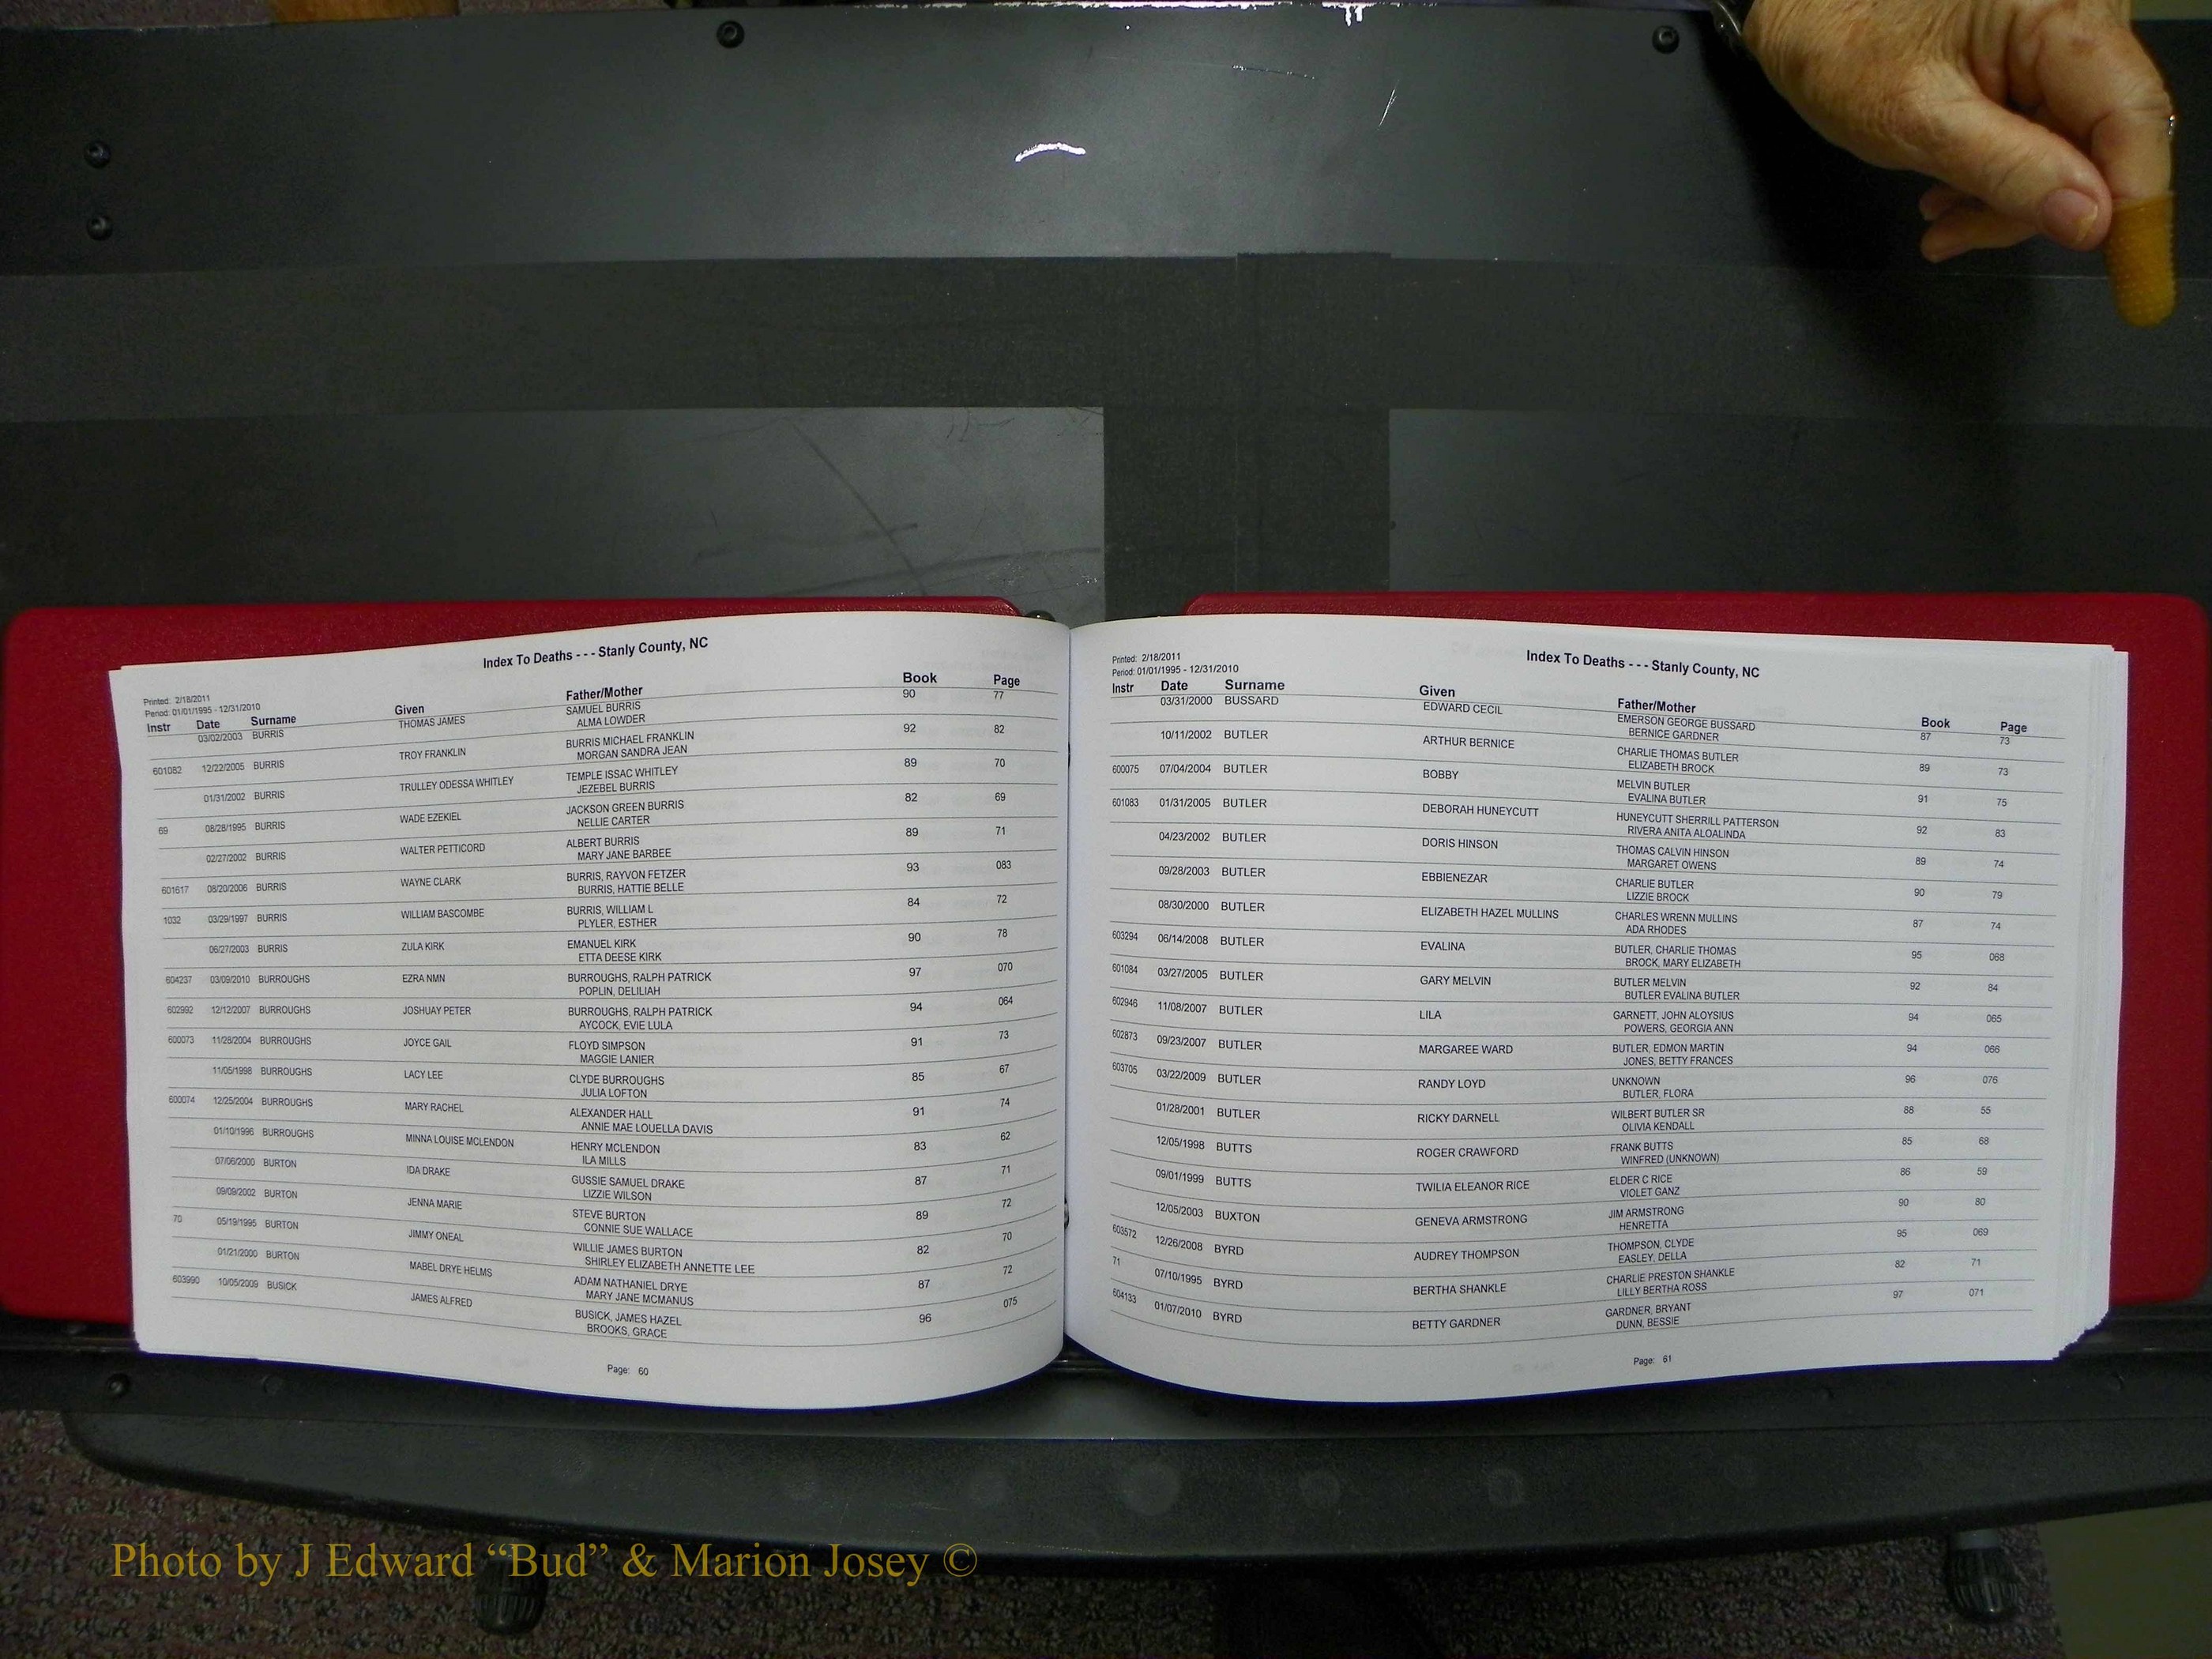 Index To Deaths - - - Stanly County, NC
Printed: 2/18/2011
Period: 01/01/1995 - 12/31/2010
Instr Date Surname Given Father/Mother Book Page
03/02/2003 BURRIS THOMAS JAMES SAMUEL BURRIS 90 77
ALMA LOWDER
601082 12/22/2005 BURRIS TROY FRANKLIN BURRIS MICHAEL FRANKLIN 92 82
MORGAN SANDRA JEAN
01/31/2002 BURRIS TRULLEY ODESSA WHITLEY TEMPLE ISSAC WHITLEY 89 70
JEZEBEL BURRIS
69 08/28/1995 BURRIS WADE EZEKIEL JACKSON GREEN BURRIS 82 69
NELLIE CARTER
02/27/2002 BURRIS WALTER PETTICORD ALBERT BURRIS 89 71
MARY JANE BARBEE
601617 08/20/2006 BURRIS WAYNE CLARK BURRIS, RAYVON FETZER 93 083
BURRIS, HATTIE BELLE
1032 03/29/1997 BURRIS WILLIAM BASCOMBE BURRIS, WILLIAM L 84 72
PLYLER, ESTHER
06/27/2003 BURRIS ZULA KIRK EMANUEL KIRK 90 78
ETTA DEESE KIRK
604237 03/09/2010 BURROUGHS EZRA NMN BURROUGHS, RALPH PATRICK 97 070
POPLIN, DELILIAH
602992 12/12/2007 BURROUGHS JOSHUAY PETER BURROUGHS, RALPH PATRICK 94 064
AYCOCK, EVIE LULA
600073 11/28/2004 BURROUGHS JOYCE GAIL FLOYD SIMPSON 91 73
MAGGIE LANIER
11/05/1998 BURROUGHS LACY LEE CLYDE BURROUGHS 85 67
JULIA LOFTON
600074 12/25/2004 BURROUGHS MARY RACHEL ALEXANDER HALL 91 74
ANNIE MAE LOUELLA DAVIS
01/10/1996 BURROUGHS MINNA LOUISE MCLENDON HENRY MCLENDON 83 62
ILA MILLS
07/06/2000 BURTON IDA DRAKE GUSSIE SAMUEL DRAKE 87 71
LIZZIE WILSON
09/09/2002 BURTON JENNA MARIE STEVE BURTON 89 72
CONNIE SUE WALLACE
70 05/19/1995 BURTON JIMMY ONEAL WILLIE JAMES BURTON 82 70
SHIRLEY ELIZABETH ANNETTE LEE
01/21/2000 BURTON MABEL DRYE HELMS ADAM NATHANIEL DRYE 87 72
MARY JANE MCMANUS
603990 10/05/2009 BUSICK JAMES ALFRED BUSICK, JAMES HAZEL 96 075
BROOKS, GRACE
Page: 60
Index To Deaths - - - Stanly County, NC
Printed: 2/18/2011
Period: 01/01/1995 - 12/31/2010
Instr Date Surname Given Father/Mother Book Page
03/31/2000 BUSSARD EDWARD CECIL EMERSON GEORGE BUSSARD 87 73
BERNICE GARDNER
10/11/2002 BUTLER ARTHUR BERNICE CHARLIE THOMAS BUTLER 89 73
ELIZABETH BROCK
600075 07/04/2004 BUTLER BOBBY MELVIN BUTLER 91 75
EVALINA BUTLER
601083 01/31/2005 BUTLER DEBORAH HUNEYCUTT HUNEYCUTT SHERRILL PATTERSON 92 83
RIVERA ANITA ALOALINDA
04/23/2002 BUTLER DORIS HINSON THOMAS CALVIN HINSON 89 74
MARGARET OWENS
09/28/2003 BUTLER EBBIENEZAR CHARLIE BUTLER 90 79
LIZZIE BROCK
08/30/2000 BUTLER ELIZABETH HAZEL MULLINS CHARLES WRENN MULLINS 87 74
ADA RHODES
603294 06/14/2008 BUTLER EVALINA BUTLER, CHARLIE THOMAS 95 068
BROCK, MARY ELIZABETH
601084 03/27/2005 BUTLER GARY MELVIN BUTLER MELVIN 92 84
BUTLER EVALINA BUTLER
602946 11/08/2007 BUTLER LILA GARNETT, JOHN ALOYSIUS 94 065
POWERS, GEORGIA ANN
602873 09/23/2007 BUTLER MARGAREE WARD BUTLER, EDMON MARTIN 94 066
JONES, BETTY FRANCES
603705 03/22/2009 BUTLER RANDY LOYD UNKNOWN 96 076
BUTLER, FLORA
01/28/2001 BUTLER RICKY DARNELL WILBERT BUTLER SR 88 55
OLIVIA KENDALL
12/05/1998 BUTTS ROGER CRAWFORD FRANK BUTTS 85 68
WINFRED (UNKNOWN)
09/01/1999 BUTTS TWILIA ELEANOR RICE ELDER C RICE 86 59
VIOLET GANZ
12/05/2003 BUXTON GENEVA ARMSTRONG JIM ARMSTRONG 90 80
HENRETTA
603572 12/26/2008 BYRD AUDREY THOMPSON THOMPSON, CLYDE 95 069
EASLEY, DELLA
71 07/10/1995 BYRD BERTHA SHANKLE CHARLIE PRESTON SHANKLE 82 71
LILLY BERTHA ROSS
604133 01/07/2010 BYRD BETTY GARDNER GARDNER, BRYANT 97 071
DUNN, BESSIE
Page: 61
Photo by J Edward “Bud” & Marion Josey ©